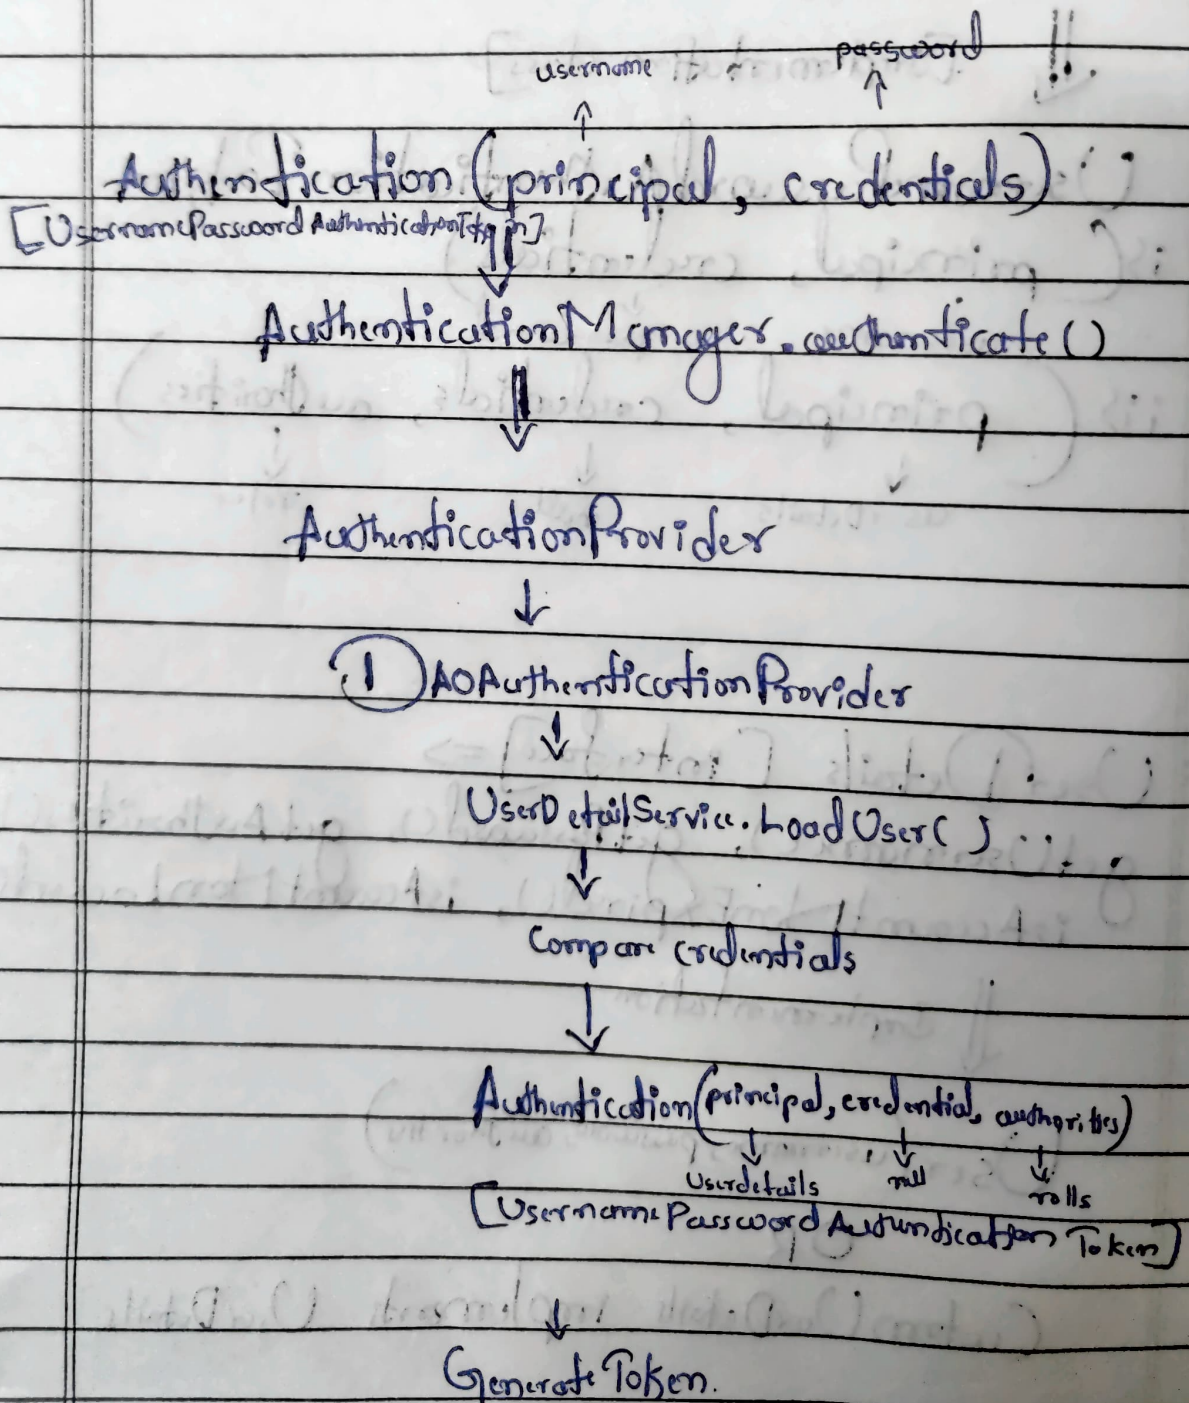 username
password
Authentication (principal, credentials)
[UsernamePasswordAuthenticationToken]
AuthenticationManager.authenticate()
AuthenticationProvider
DAOAuthenticationProvider
UserDetailService.LoadUser()
Compare credentials
Authentication(principal, credential, authorities)
Userdetails
null
rolls
[UsernamePasswordAuthentication Token]
Generate Token.